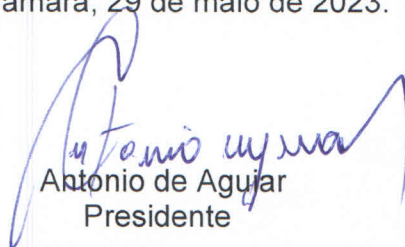 amara, 29 de maio de 2023.
Antonio
Antonio de Aguiar
Presidente